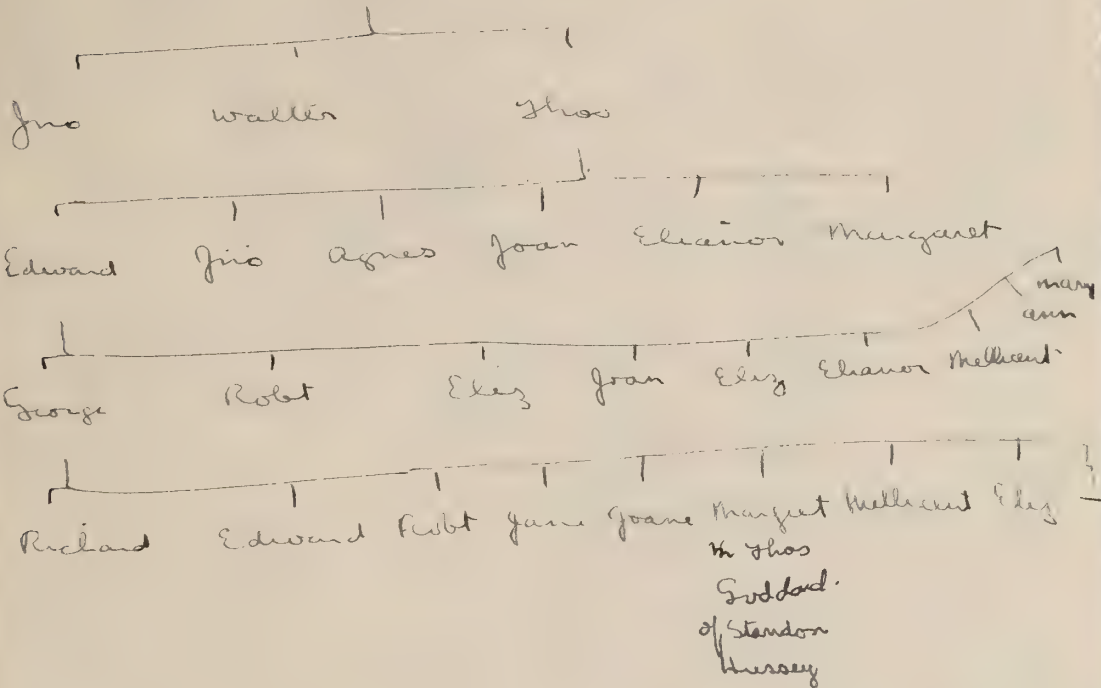 Jno Walter Thos
Edward Jno Agnes Joan Eleanor Margaret
mary
ann
George Robt Eliz Joan Eliz Eleanor Mellicent
Richard Edward Robt Jane Joane Margret Mellicent Eliz
m Thos
Goddard.
of Standon
Hussey